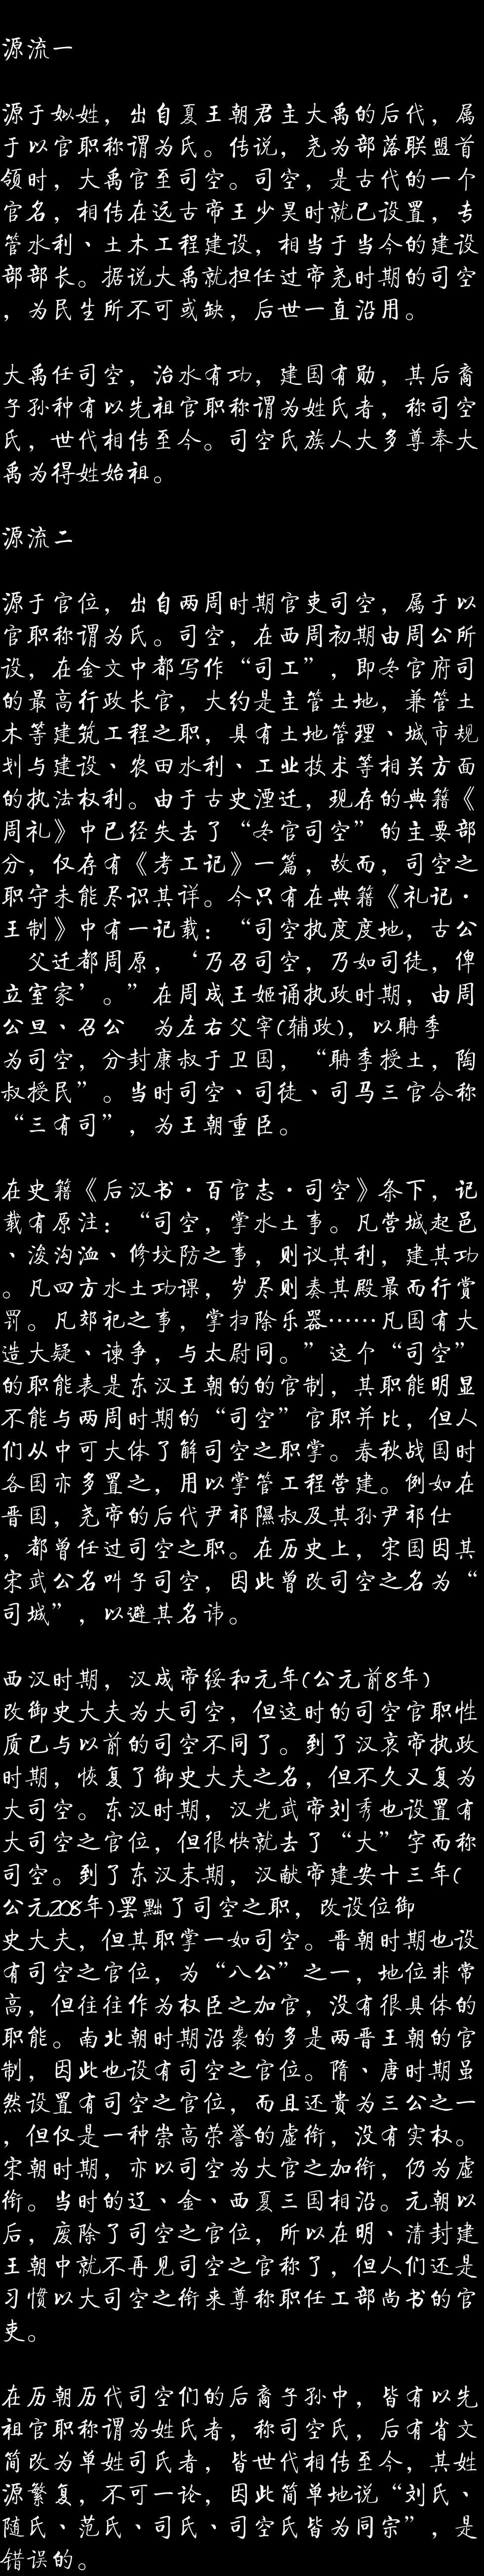 源流一
源于姒姓，出自夏王朝君主大禹的后代，属
于以官职称谓为氏。传说，尧为部落联盟首
领时，大禹官至司空。司空，是古代的一个
官名，相传在远古帝王少昊时就已设置，专
管水利、土木工程建设，相当于当今的建设
部部长。据说大禹就担任过帝尧时期的司空
，为民生所不可或缺，后世一直沿用。
大禹任司空，治水有功，建国有勋，其后裔
子孙种有以先祖官职称谓为姓氏者，称司空
氏，世代相传至今。司空氏族人大多尊奉大
禹为得姓始祖。
源流二
源于官位，出自两周时期官吏司空，属于以
官职称谓为氏。司空，在西周初期由周公所
设，在金文中都写作“司工”，即冬官府司
的最高行政长官，大约是主管土地，兼管土
木等建筑工程之职，具有土地管理、城市规
划与建设、农田水利、工业技术等相关方面
的执法权利。由于古史湮迁，现存的典籍《
周礼》中已经失去了“冬官司空”的主要部
分，仅存有《考工记》一篇，故而，司空之
职守未能尽识其详。今只有在典籍《礼记·
王制》中有一记载：“司空执度度地，古公
父迁都周原，‘乃召司空，乃如司徒，俾
立室家’。”在周成王姬诵执政时期，由周
公旦、召公 为左右父宰(辅政)，以聃季
为司空，分封康叔于卫国，“聃季授土，陶
叔授民”。当时司空、司徒、司马三官合称
“三有司”，为王朝重臣。
在史籍《后汉书·百官志·司空》条下，记
载有原注：“司空，掌水土事。凡营城起邑
、浚沟洫、修坟防之事，则议其利，建其功
。凡四方水土功课，岁尽则奏其殿最而行赏
罚。凡郊祀之事，掌扫除乐器……凡国有大
造大疑、谏争，与太尉同。”这个“司空”
的职能表是东汉王朝的的官制，其职能明显
不能与两周时期的“司空”官职并比，但人
们从中可大体了解司空之职掌。春秋战国时
各国亦多置之，用以掌管工程营建。例如在
晋国，尧帝的后代尹祁隰叔及其孙尹祁仕
，都曾任过司空之职。在历史上，宋国因其
宋武公名叫子司空，因此曾改司空之名为“
司城”，以避其名讳。
西汉时期，汉成帝绥和元年(公元前8年)
改御史大夫为大司空，但这时的司空官职性
质已与以前的司空不同了。到了汉哀帝执政
时期，恢复了御史大夫之名，但不久又复为
大司空。东汉时期，汉光武帝刘秀也设置有
大司空之官位，但很快就去了“大”字而称
司空。到了东汉末期，汉献帝建安十三年(
公元208年)罢黜了司空之职，改设位御
史大夫，但其职掌一如司空。晋朝时期也设
有司空之官位，为“八公”之一，地位非常
高，但往往作为权臣之加官，没有很具体的
职能。南北朝时期沿袭的多是两晋王朝的官
制，因此也设有司空之官位。隋、唐时期虽
然设置有司空之官位，而且还贵为三公之一
，但仅是一种崇高荣誉的虚衔，没有实权。
宋朝时期，亦以司空为大官之加衔，仍为虚
衔。当时的辽、金、西夏三国相沿。元朝以
后，废除了司空之官位，所以在明、清封建
王朝中就不再见司空之官称了，但人们还是
习惯以大司空之衔来尊称职任工部尚书的官
吏。
在历朝历代司空们的后裔子孙中，皆有以先
祖官职称谓为姓氏者，称司空氏，后有省文
简改为单姓司氏者，皆世代相传至今，其姓
源繁复，不可一论，因此简单地说“刘氏、
随氏、范氏、司氏、司空氏皆为同宗”，是
错误的。